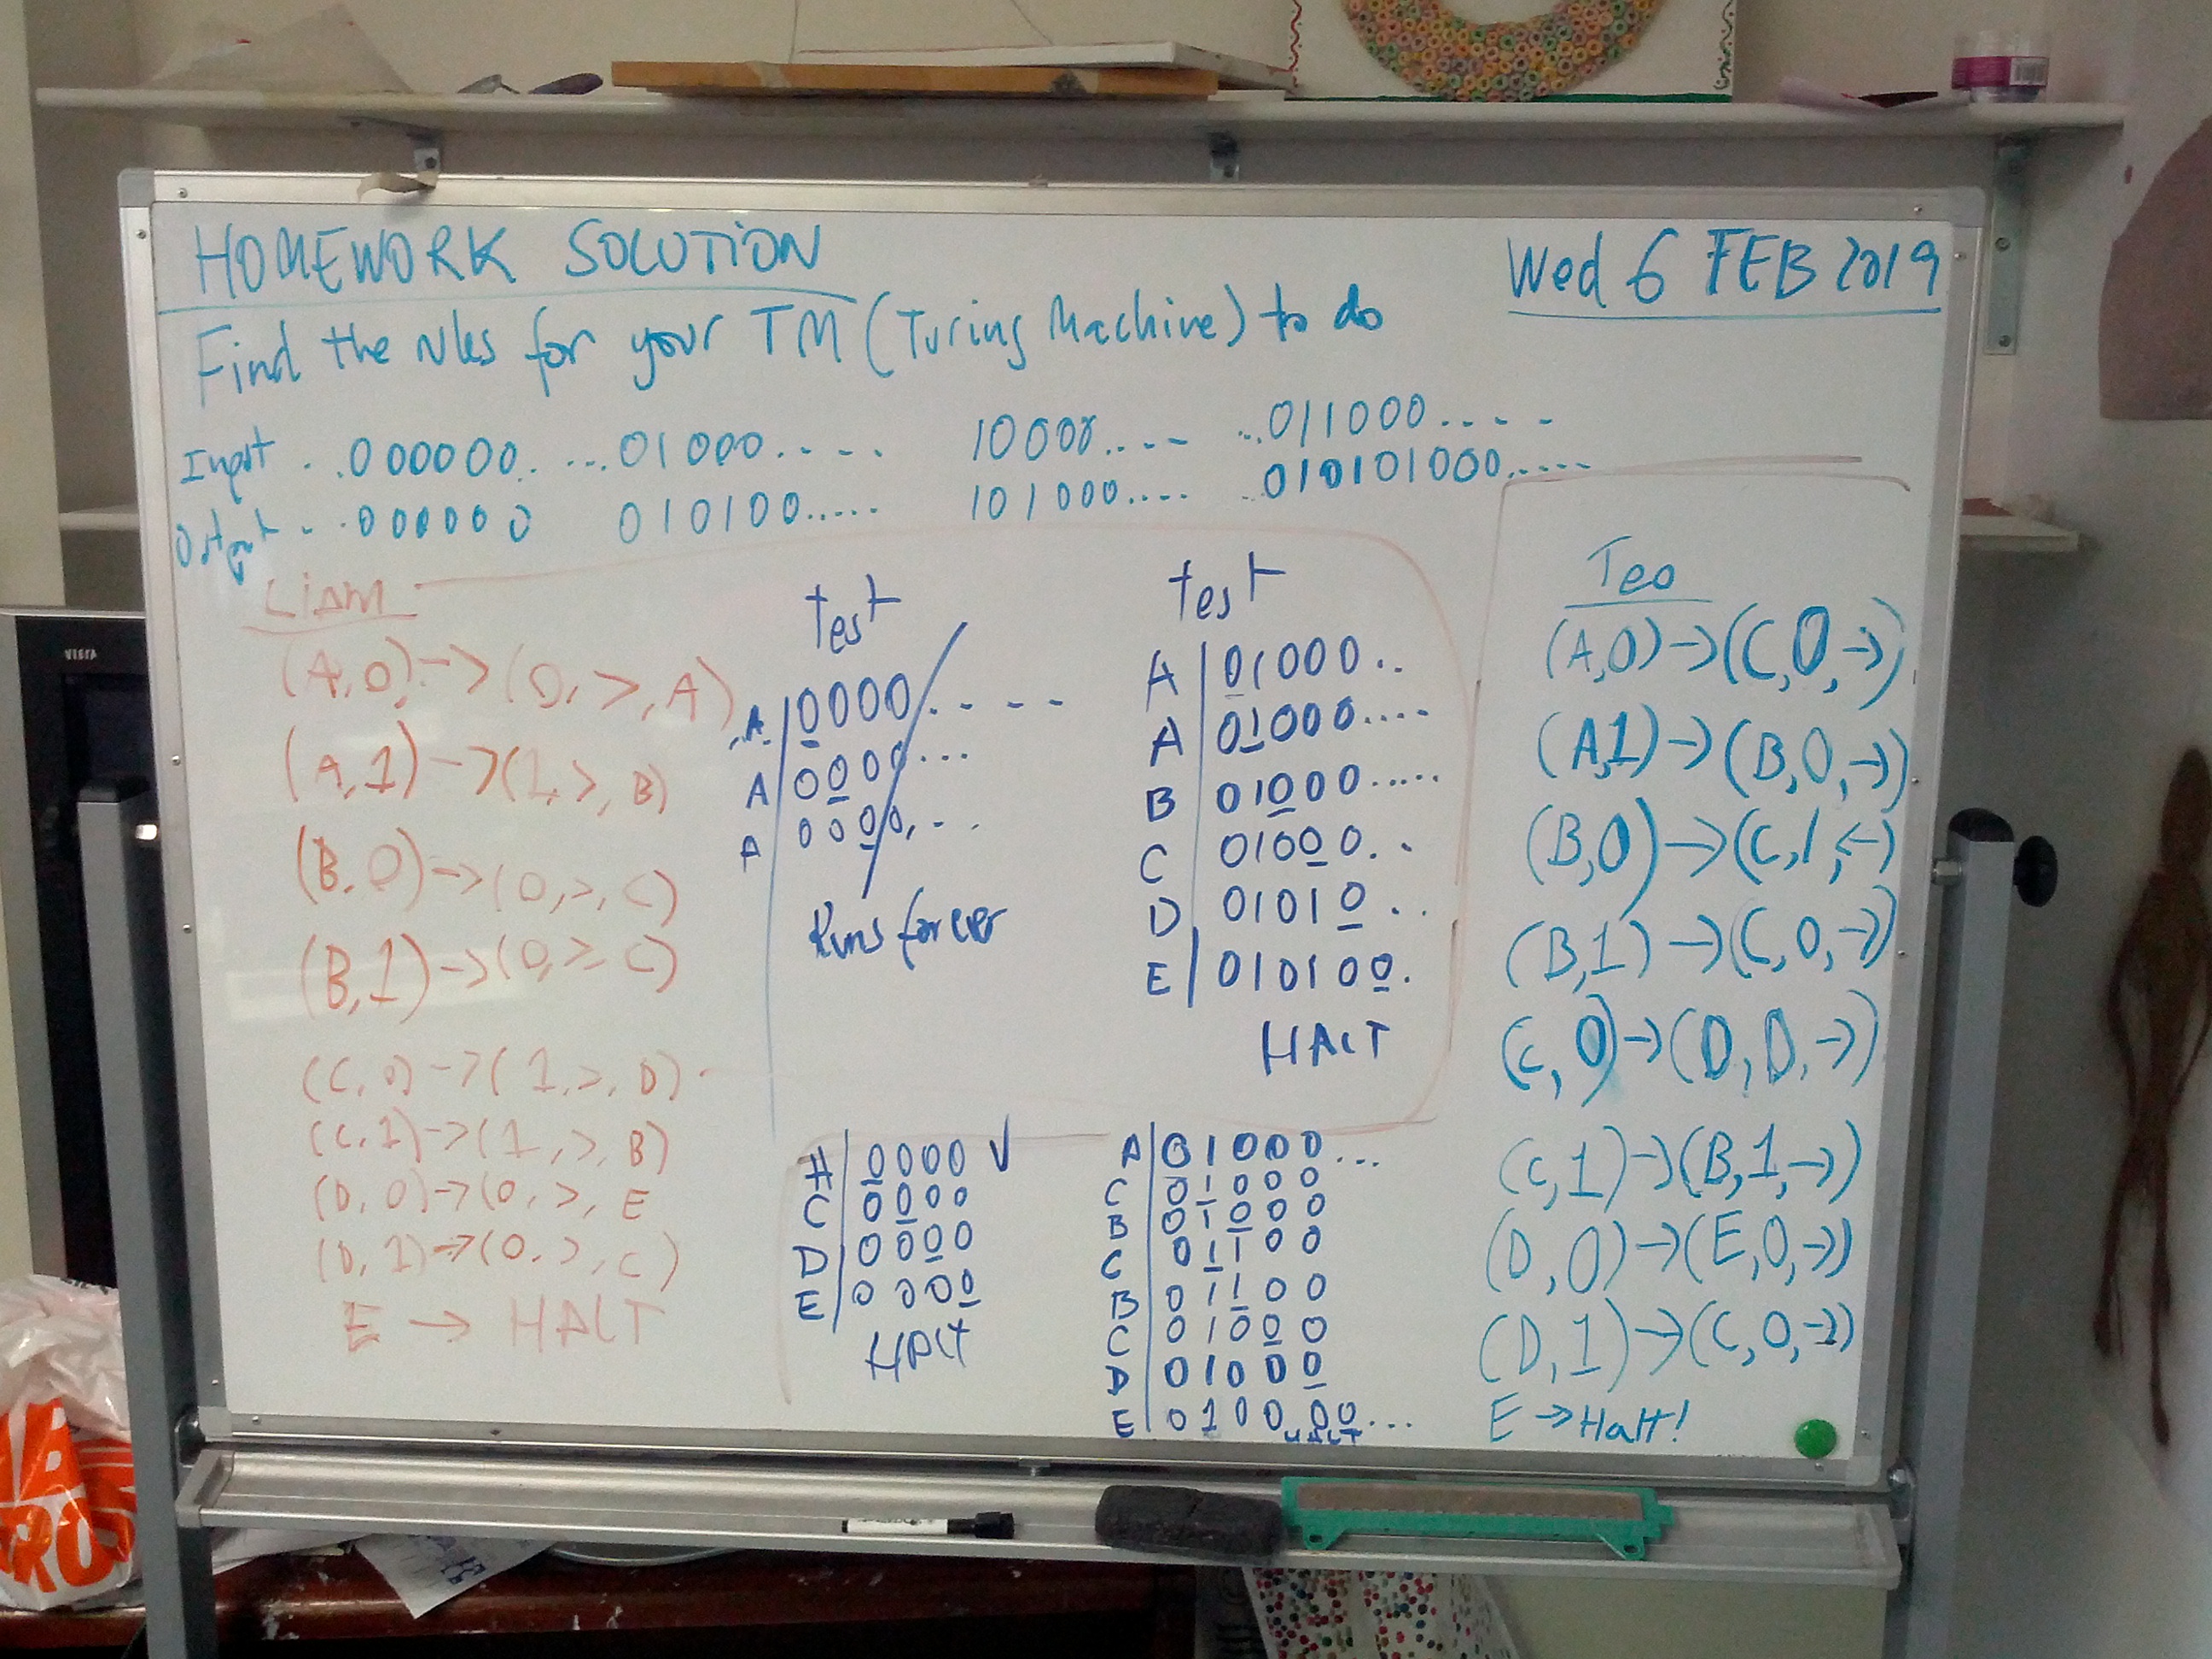 HOMEWORK SOLUTION
Wed 6 FEB 2019
Find the rules for your TM (Turing Machine) to do
Input ..000000. ...01000..... 10000.... ...011000.....
Output ...000000 010100..... 101000.... ...010101000.....
Liam
(A,0)->(0,>,A)
(A,1)->(1,>,B)
(B,0)->(0,>,C)
(B,1)->(0,>,C)
(C,0)->(1,>,D)
(C,1)->(1,>,B)
(D,0)->(0,>,E
(D,1)->(0,>,C)
E → HALT
test
A|0000.----
A|0000...
A|0000,...
Runs forever
test
A|01000..
A|01000....
B|01000.....
C|01000..
D|01010..
E|010100.
HALT
A|0000 √
C|0000
D|0000
E|0000
HALT
A|01000...
C|01000
B|01000
C|01100
B|01100
C|01000
D|01000
E|010000...
HALT
Teo
(A,0)→(C,0,→)
(A,1)→(B,0,→)
(B,0)→(C,1,←)
(B,1)→(C,0,→)
(C,0)→(D,0,→)
(C,1)→(B,1,→)
(D,0)→(E,0,→)
(D,1)→(C,0,→)
E→Halt!
VISTA